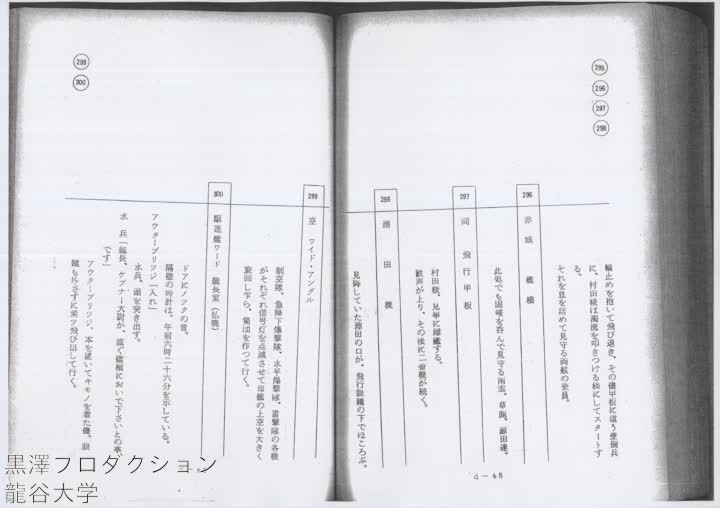 295
296
297
298
輪止めを抱いて飛び退き、その儘甲板に這う整備兵
に、村田機は濁流を叩きつける様にしてスタートす
る。
それを息を詰めて見守る両舷の乗員。
296 赤城 艦橋
此処でも固唾を呑んで見守る南雲、草鹿、源田達。
297 同 飛行甲板
村田機、見事に離艦する。
歓声が上り、その後に二番機が続く。
298 淵田機
見降していた淵田の口が、飛行眼鏡の下でほころぶ。
d-48
299
300
299 空 ワイド・アングル
制空隊、急降下爆撃隊、水平爆撃隊、雷撃隊の各機
がそれぞれ信号灯を点滅させて母艦の上空を大きく
旋回し乍ら、集団を作つて行く。
300 駆逐艦ワード 艦長室(払暁)
ドアにノックの音。
隔壁の時計は、午前六時二十六分を示している。
アウターブリッジ「入れ」
水兵、頭を突き出す。
水 兵「艦長、ゲプナー大尉が、直ぐ艦橋においで下さいとの事
です」
アウターブリッジ、本を置いてキモノを着た儘、眼
鏡も外さずに素ッ飛び出して行く。
黒澤プロダクション
龍谷大学